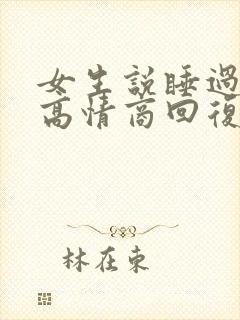 女生說睡過
高情商回復
林在東